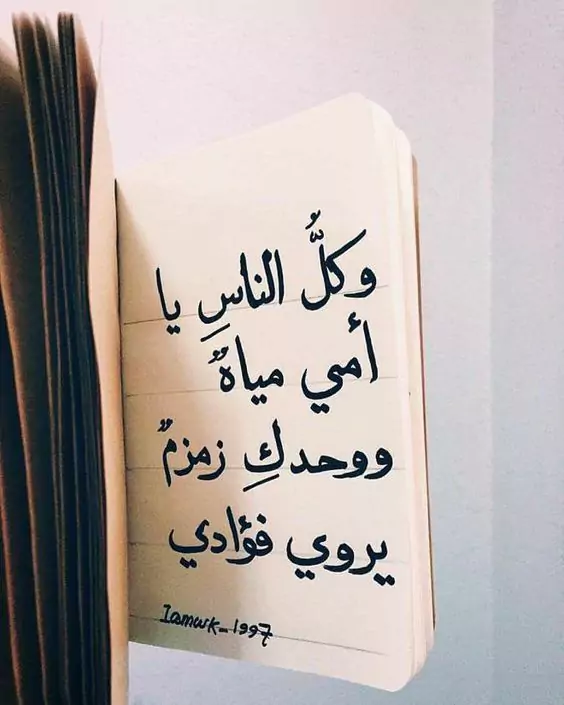 وكلُّ الناسِ يا
أمي مياهٌ
ووحدكِ زمزمٌ
يروي فؤادي
Iamwk_1997